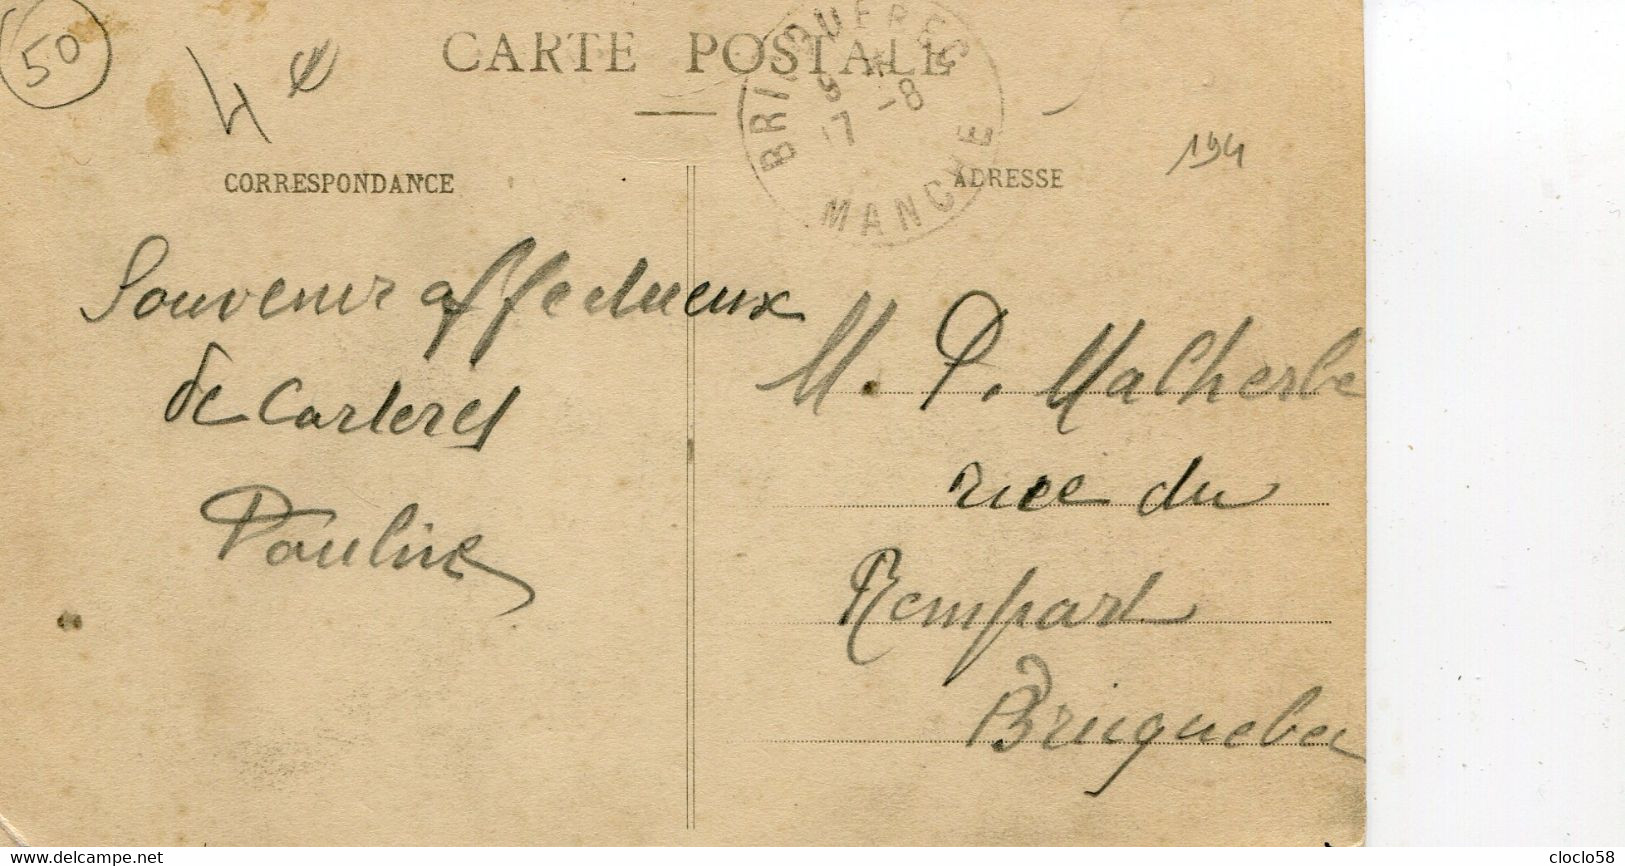 50
CARTE POSTALE
BRICQUEBEC
MANCHE
17 -8
194
CORRESPONDANCE
ADRESSE
Souvenir affectueux
de Carteret
Pauline
M. P. Malherbe
rue du
Rempart
Bricquebec
delcampe.net
cloclo58